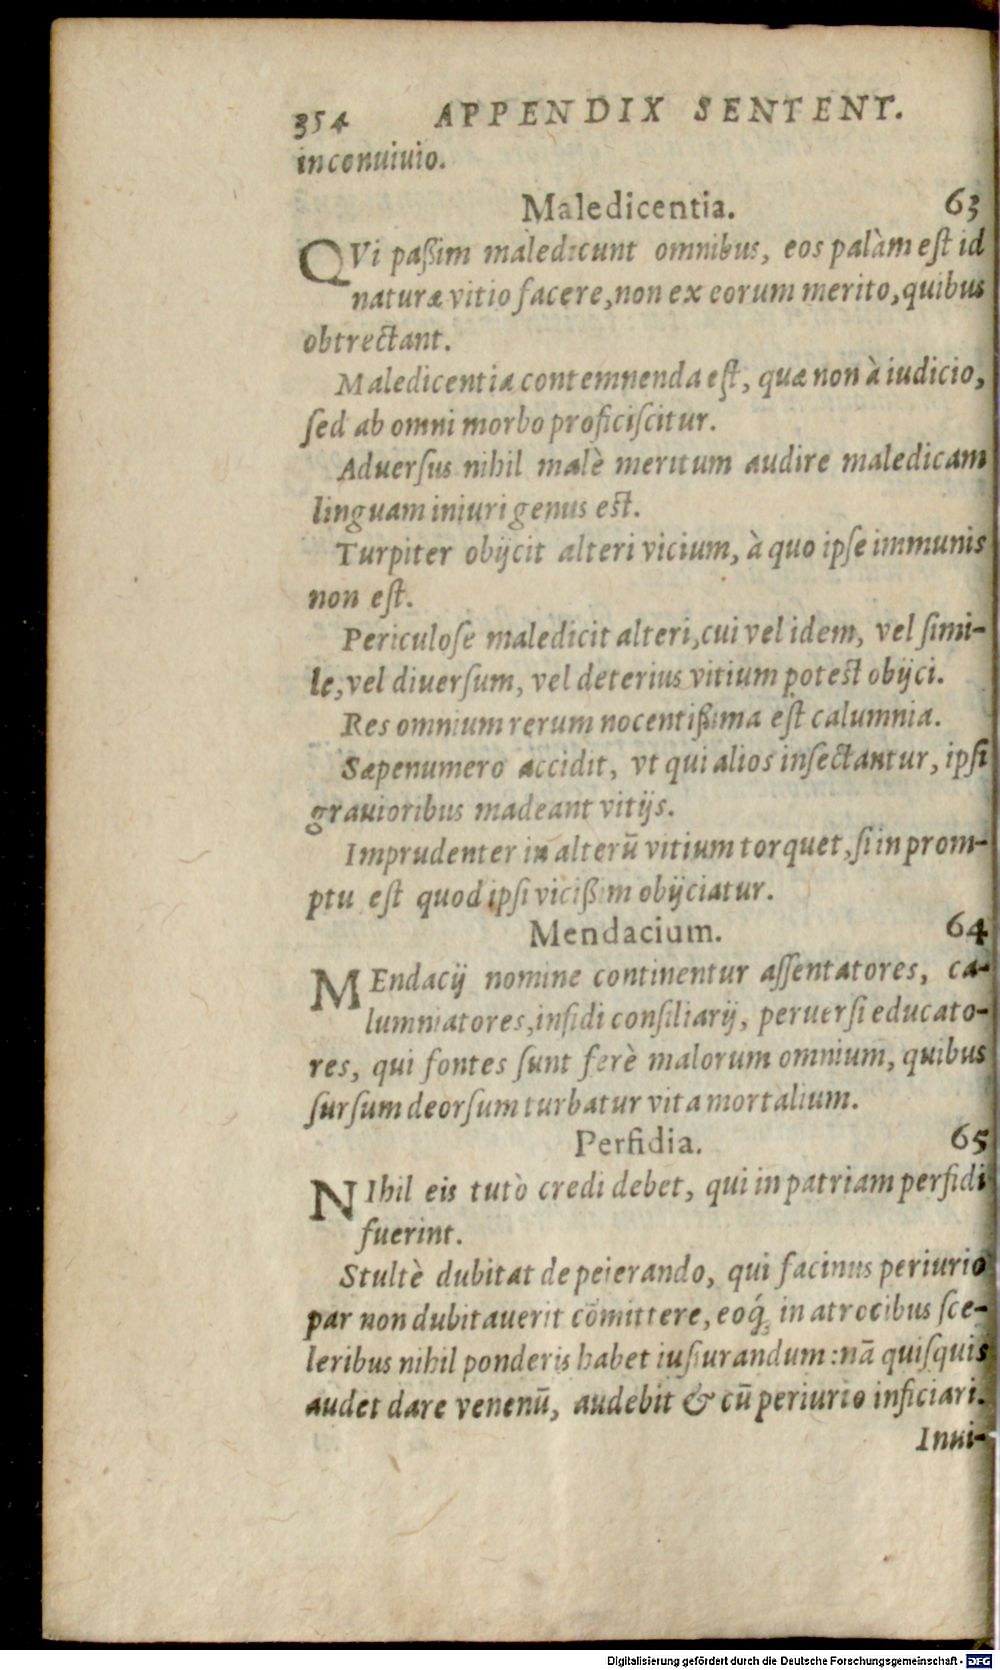 354 APPENDIX SENTENT.
in conuiuio.
Maledicentia. 63
QVi paßim maledicunt omnibus, eos palàm eſt id
naturæ vitio facere, non ex eorum merito, quibus
obtrectant.
Maledicentia contemnenda eſt, quæ non à iudicio,
ſed ab omni morbo proficiſcitur.
Aduerſus nihil malè meritum audire maledicam
linguam iniuri genus eſt.
Turpiter obijcit alteri vicium, à quo ipſe immunis
non eſt.
Periculoſe maledicit alteri, cui vel idem, vel ſimi-
le, vel diuerſum, vel deterius vitium poteſt obijci.
Res omnium rerum nocentißima eſt calumnia.
Sæpenumero accidit, vt qui alios inſectantur, ipſi
grauioribus madeant vitijs.
Imprudenter in alterū vitium torquet, ſi in prom-
ptu eſt quod ipſi vicißim obijciatur.
Mendacium. 64
MEndacij nomine continentur aſſentatores, ca-
lumniatores, infidi conſiliarij, peruerſi educato-
res, qui fontes ſunt ferè malorum omnium, quibus
ſurſum deorſum turbatur vita mortalium.
Perfidia. 65
NIhil eis tutò credi debet, qui in patriam perfidi
fuerint.
Stultè dubitat de peierando, qui facinus periurio
par non dubitauerit cōmittere, eoq́; in atrocibus ſce-
leribus nihil ponderis habet iuſiurandum: nā quiſquis
audet dare venenū, audebit & cū periurio inficiari.
Inui-
Digitalisierung gefördert durch die Deutsche Forschungsgemeinschaft - DFG